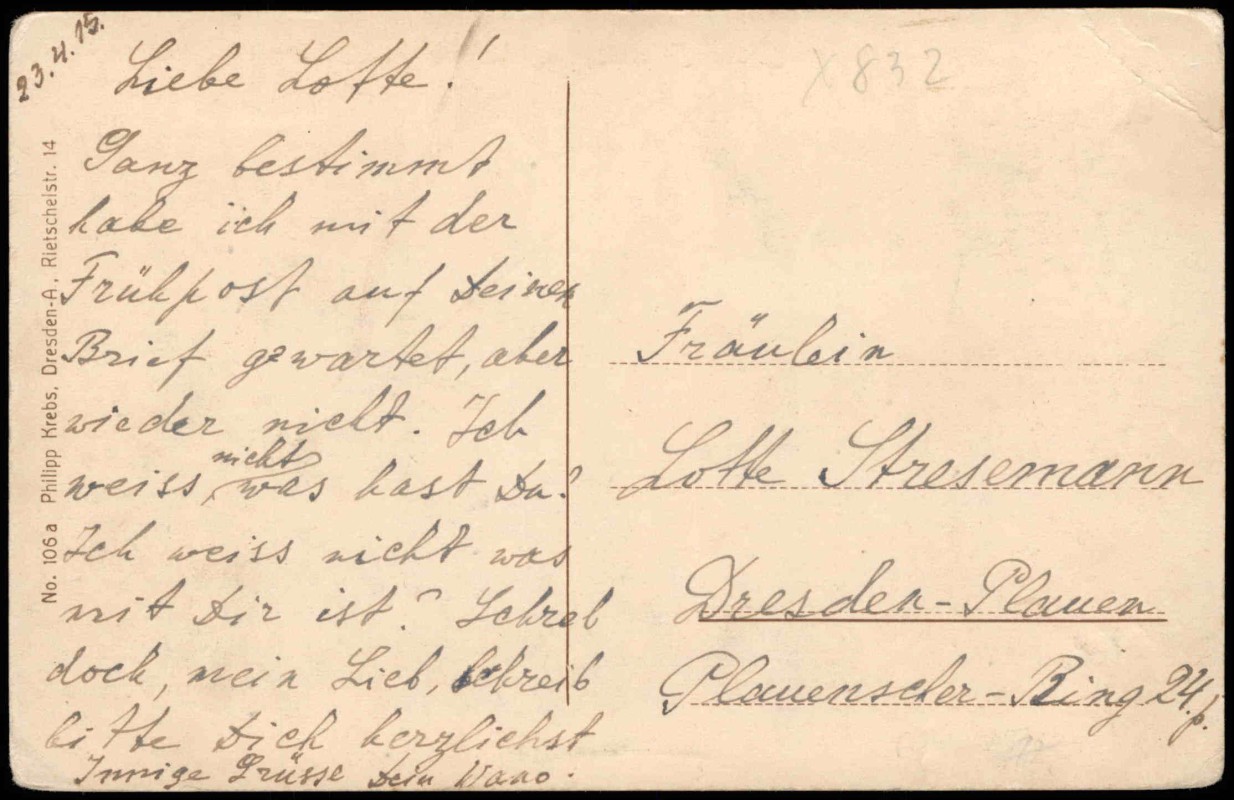 23.4.15.
Liebe Lotte!
Ganz bestimmt
habe ich mit der
Frühpost auf Deinen
Brief gewartet, aber
wieder nicht. Ich
weiss nicht was hast Du?
Ich weiss nicht was
mit Dir ist? Schreb
doch, mein Lieb, schreib
bitte Dich herzlichst
Innige Grüsse Dein
No. 106a Philipp Krebs, Dresden-A., Rietschelstr. 14
X 832
Fräulein
Lotte Stresemann
Dresden-Plauen
Plauenscher-Ring 24 p.